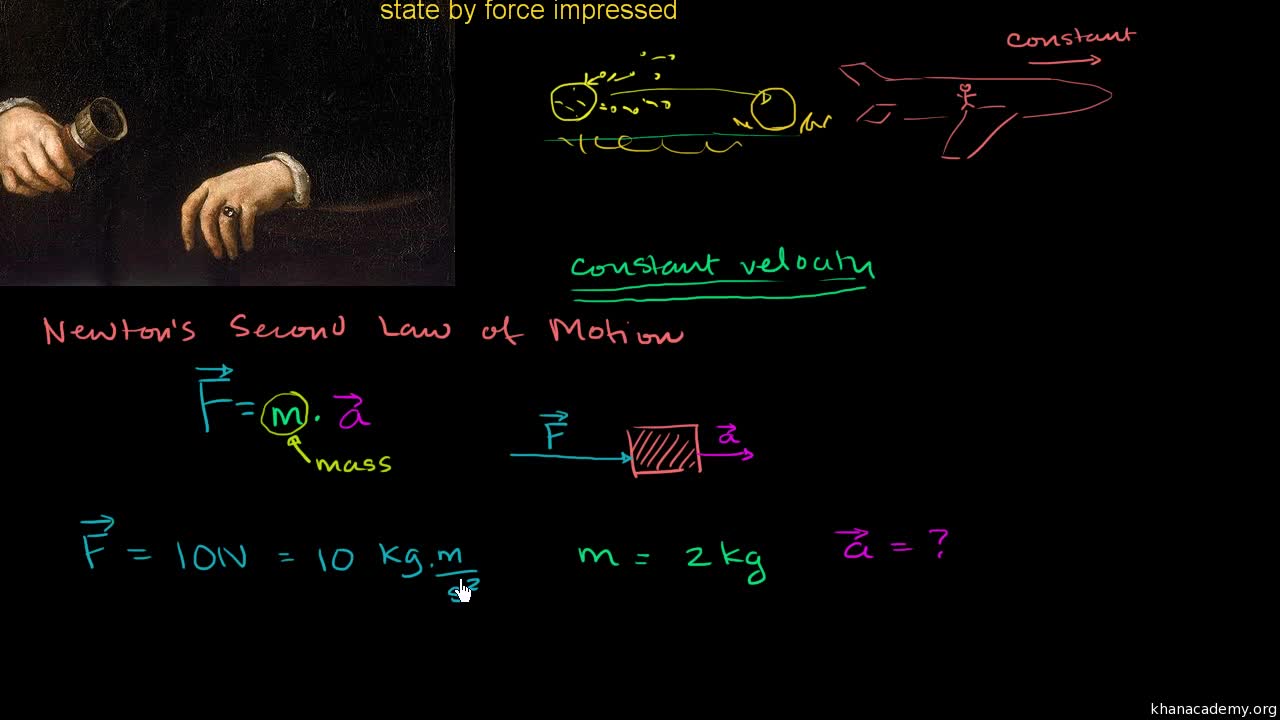 state by force impressed
constant
constant velocity
Newton's Second Law of Motion
F = m · a
mass
F
a
F = 10N = 10 kg · m/s²
m = 2kg
a = ?
khanacademy.org